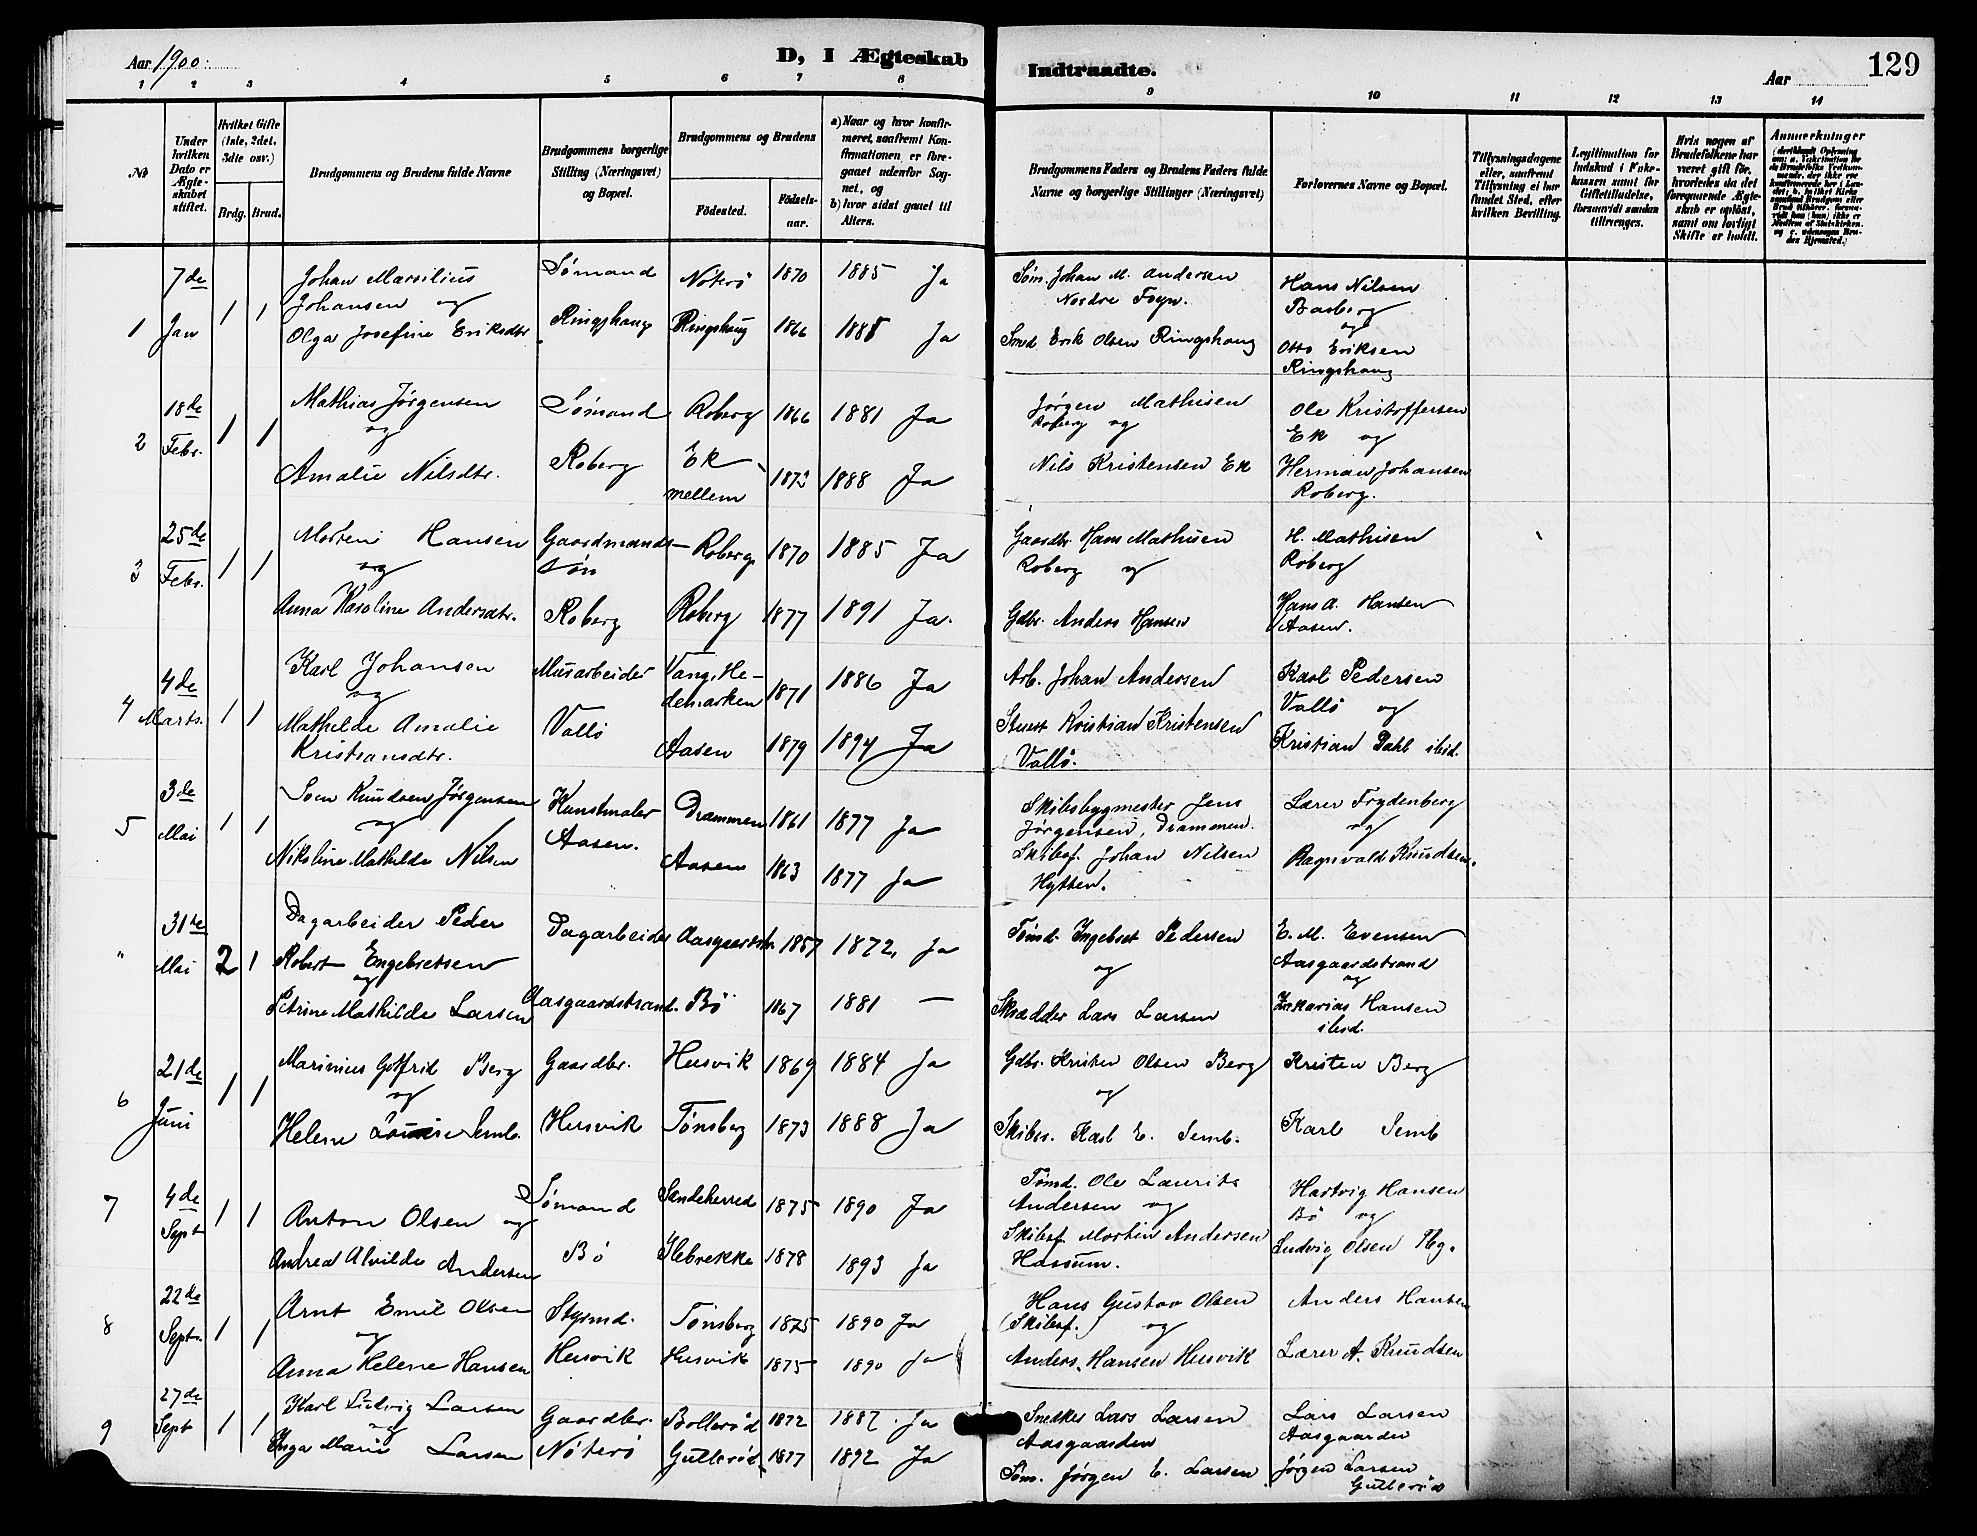 Aar 1900.
D, I Ægteskab Indtraadte.
Aar
129
1 2 3 4 5 6 7 8 9 10 11 12 13 14
No
Under hvilken Dato er Ægteskabet stiftet.
Hvilket Gifte (1ste, 2det, 3die osv.)
Brdg. Brud.
Brudgommens og Brudens fulde Navne
Brudgommens borgerlige Stilling (Næringsvei) og Bopæl.
Brudgommens og Brudens
Fødested.
Fødselsaar.
a) Naar og hvor konfirmeret, saafremt Konfirmationen er foregaaet udenfor Sognet, og
b) hvor sidst gaaet til Alters.
Brudgommens Faders og Brudens Faders fulde Navne og borgerlige Stillinger (Næringsvei)
Forlovernes Navne og Bopæl.
Tillysningsdagene eller, saafremt Tillysning ei har fundet Sted, efter hvilken Bevilling.
Legitimation for Indskud i Enkekassen samt for Giftetilladelse, forsaavidt saadan tiltrænges.
Hvis nogen af Brudefolkene har været gift før, hvorledes da det foregaaende Ægteskab er opløst, samt om lovligt Skifte er holdt.
Anmærkninger
7de Johan Marsilius Sømand Nøterø 1870 1885 Ja Søm. Johan M. Andersen Hans Nilsen
Johansen og Nordre Foyn. Basberg
1 Jan 1 1 Olga Josefine Eriksdtr. Ringshaug Ringshaug 1866 1885 Ja Smd Erik Olsen Ringshaug og
Otto Eriksen
Ringshaug
18de Mathias Jørgensen Sømand Roberg 1866 1881 Ja Jørgen Mathisen Ole Kristoffersen
2 Febr. 1 1 og Roberg og Ek og
Amalie Nilsdtr. Roberg Ek mellem 1873 1888 Ja Nils Kristensen Ek Herman Johansen
Roberg.
25de Morten Hansen Gaardmands- Roberg 1870 1885 Ja Gaardbr. Hans Mathisen H. Mathisen
3 Febr. 1 1 og søn Roberg og Roberg
Anna Karoline Andersdtr. Roberg Roberg 1877 1891 Ja. Gdbr. Anders Hansen Hans A. Hansen
Aasen.
4de Karl Johansen Murarbeider Vang, He- 1871 1886 Ja Arb. Johan Andersen Karl Pedersen
4 Marts. 1 1 og demarken Vallø og
Mathilde Amalie Vallø Aasen 1879 1894 Ja Stuert Kristian Kristensen Kristian Dahl ibid.
Kristiansdtr. Vallø.
3de Soen Knudsen Jørgensen Kunstmaler Drammen 1861 1877 Ja Skibsbygmester Jens Lærer Frydenberg
5 Mai 1 1 og Aasen. Jørgensen, Drammen. og
Nikoline Mathilde Nilsen Aasen 1863 1877 Ja Skibsf. Johan Nilsen Ragnvald Knudsen.
Hytten.
31te Dagarbeider Peder Dagarbeider Aasgaardstr. 1857 1872, Ja Tømd. Ingebret Pedersen E. M. Evensen
" Mai 2 1 Robert Engebretsen og Aasgaardstrand
og og
Petrine Mathilde Larsen Aasgaardstrand. Bø 1867 1881 — Skrædder Lars Larsen Zakarias Hansen
ibid.
21de Marinius Gotfrid Berg Gaardbr. Husvik 1869 1884 Ja Gdbr. Kristen Olsen Berg Kristen Berg
6 Juni 1 1 og og
Helene Louise Semb. Husvik Tønsberg 1873 1888 Ja Skibsr. Karl E. Semb. Karl Semb
4de Sømand Sandeherred 1875 1890 Ja Tømd. Ole Laurits Hartvig Hansen
7 Sept 1 1 Anton Olsen og Andersen og Bø og
Andrea Alvilde Andersen Bø Ilebrekke 1878 1893 Ja Skibsf. Martin Andersen Ludvig Olsen Tbg.
Hassum.
22de Arnt Emil Olsen Styrmd. Tønsberg 1875 1890 Ja Hans Gustav Olsen Anders Hansen
8 Septr. 1 1 og (Skibsf.) og
Anna Helene Hansen Husvik Husvik 1875 1890 Ja Anders Hansen Husvik Lærer A. Knudsen
27de Karl Ludvig Larsen Gaardbr. Bollerød 1872 1887. Ja Snedker Lars Larsen Lars Larsen
9 Sept 1 1 og Aasgaarden Aasgaarden
Inga Marie Larsen Nøterø Gullerød 1877 1892 Ja Søm. Jørgen E. Larsen Jørgen Larsen
Gullerød